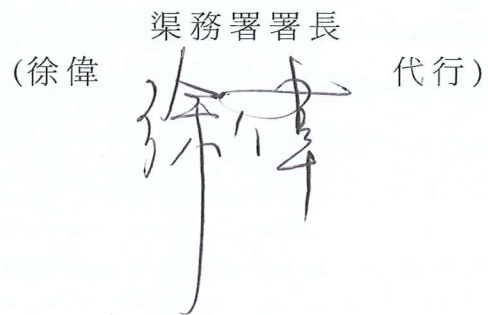 渠務署署長
(徐偉 代行)
徐偉